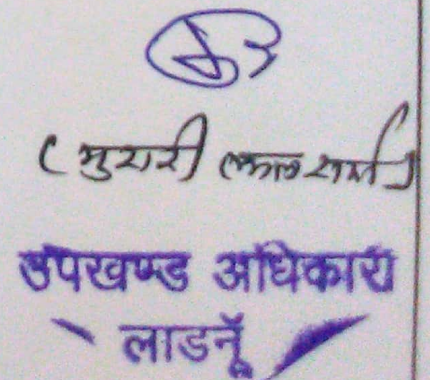 (मुरारी लाल शर्मा)
उपखण्ड अधिकारी
लाडनूँ